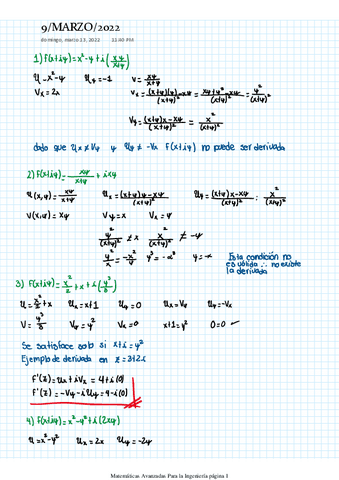 9/MARZO/2022
domingo, marzo 13, 2022 11:48 PM
1) f(x+iy)=x²-y+i(xy/x+y)
u=x²-y uy=-1 v=xy/x+y
ux=2x vx=(x+y)(y)-xy/(x+y)²=xy+y²-xy/(x+y)²=y²/(x+y)²
vy=(x+y)x-xy/(x+y)²=x²/(x+y)²
dado que ux≠vy y uy≠-vx f(x+iy) no puede ser derivada
2) f(x+iy)=xy/x+y + ixy
u(x,y)=xy/x+y ux=(x+y)y-xy/(x+y)² uy=(x+y)x-xy/(x+y)²; x²/(x+y)²
v(x,y)=xy vy=x vx=y
y²/(x+y)²≠x x²/(x+y)²≠-y
y²/x=-x²/y y³=-x³ y=-x Esta condición no
es válida ∴ no existe
la derivada
3) f(x+iy)=x²/2+x+i(y³/3)
u=x²/2+x ux=x+1 uy=0 ux=vy uy=-vx
v=y³/3 vy=y² vx=0 x+1=y² 0=0 ✓
Se satisface solo si x+1=y²
Ejemplo de derivada en z=3+2i
f'(z)=ux+ivx=4+i(0)
f'(z)=-vy-iuy=4-i(0)
4) f(x+iy)=x²-y²+i(2xy)
u=x²-y² ux=2x uy=-2y
Matemáticas Avanzadas Para la Ingeniería página 1